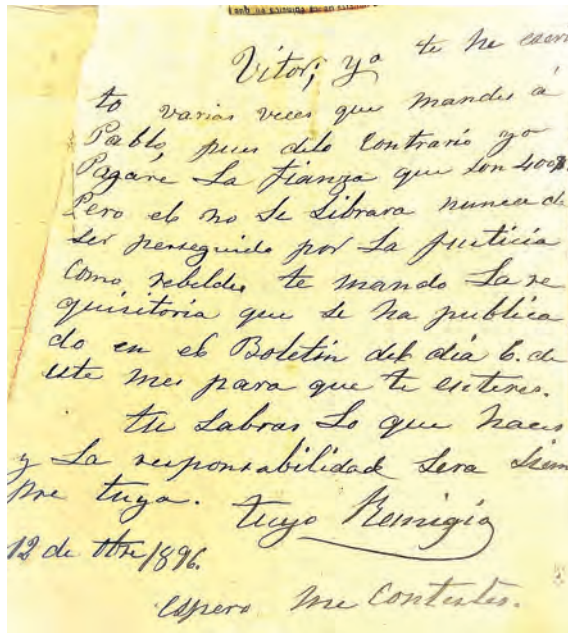 Vitor; ya te he escri
to varias veces que mandes á
Pablo, pues delo Contrario yo
Pagare La fianza que son 400
Pero el no Se Librara nunca de
Ser perseguido por La Justicia
Como rebelde te mando La re
quisitoria que se ha publica
do en el Boletin del dia 6. de
este mes para que te enteres.
tu Sabras Lo que haces
y La responsabilidad Sera Siem
pre tuya. tuyo Remigio
12 de 8bre 1896.
espero me Contestes.